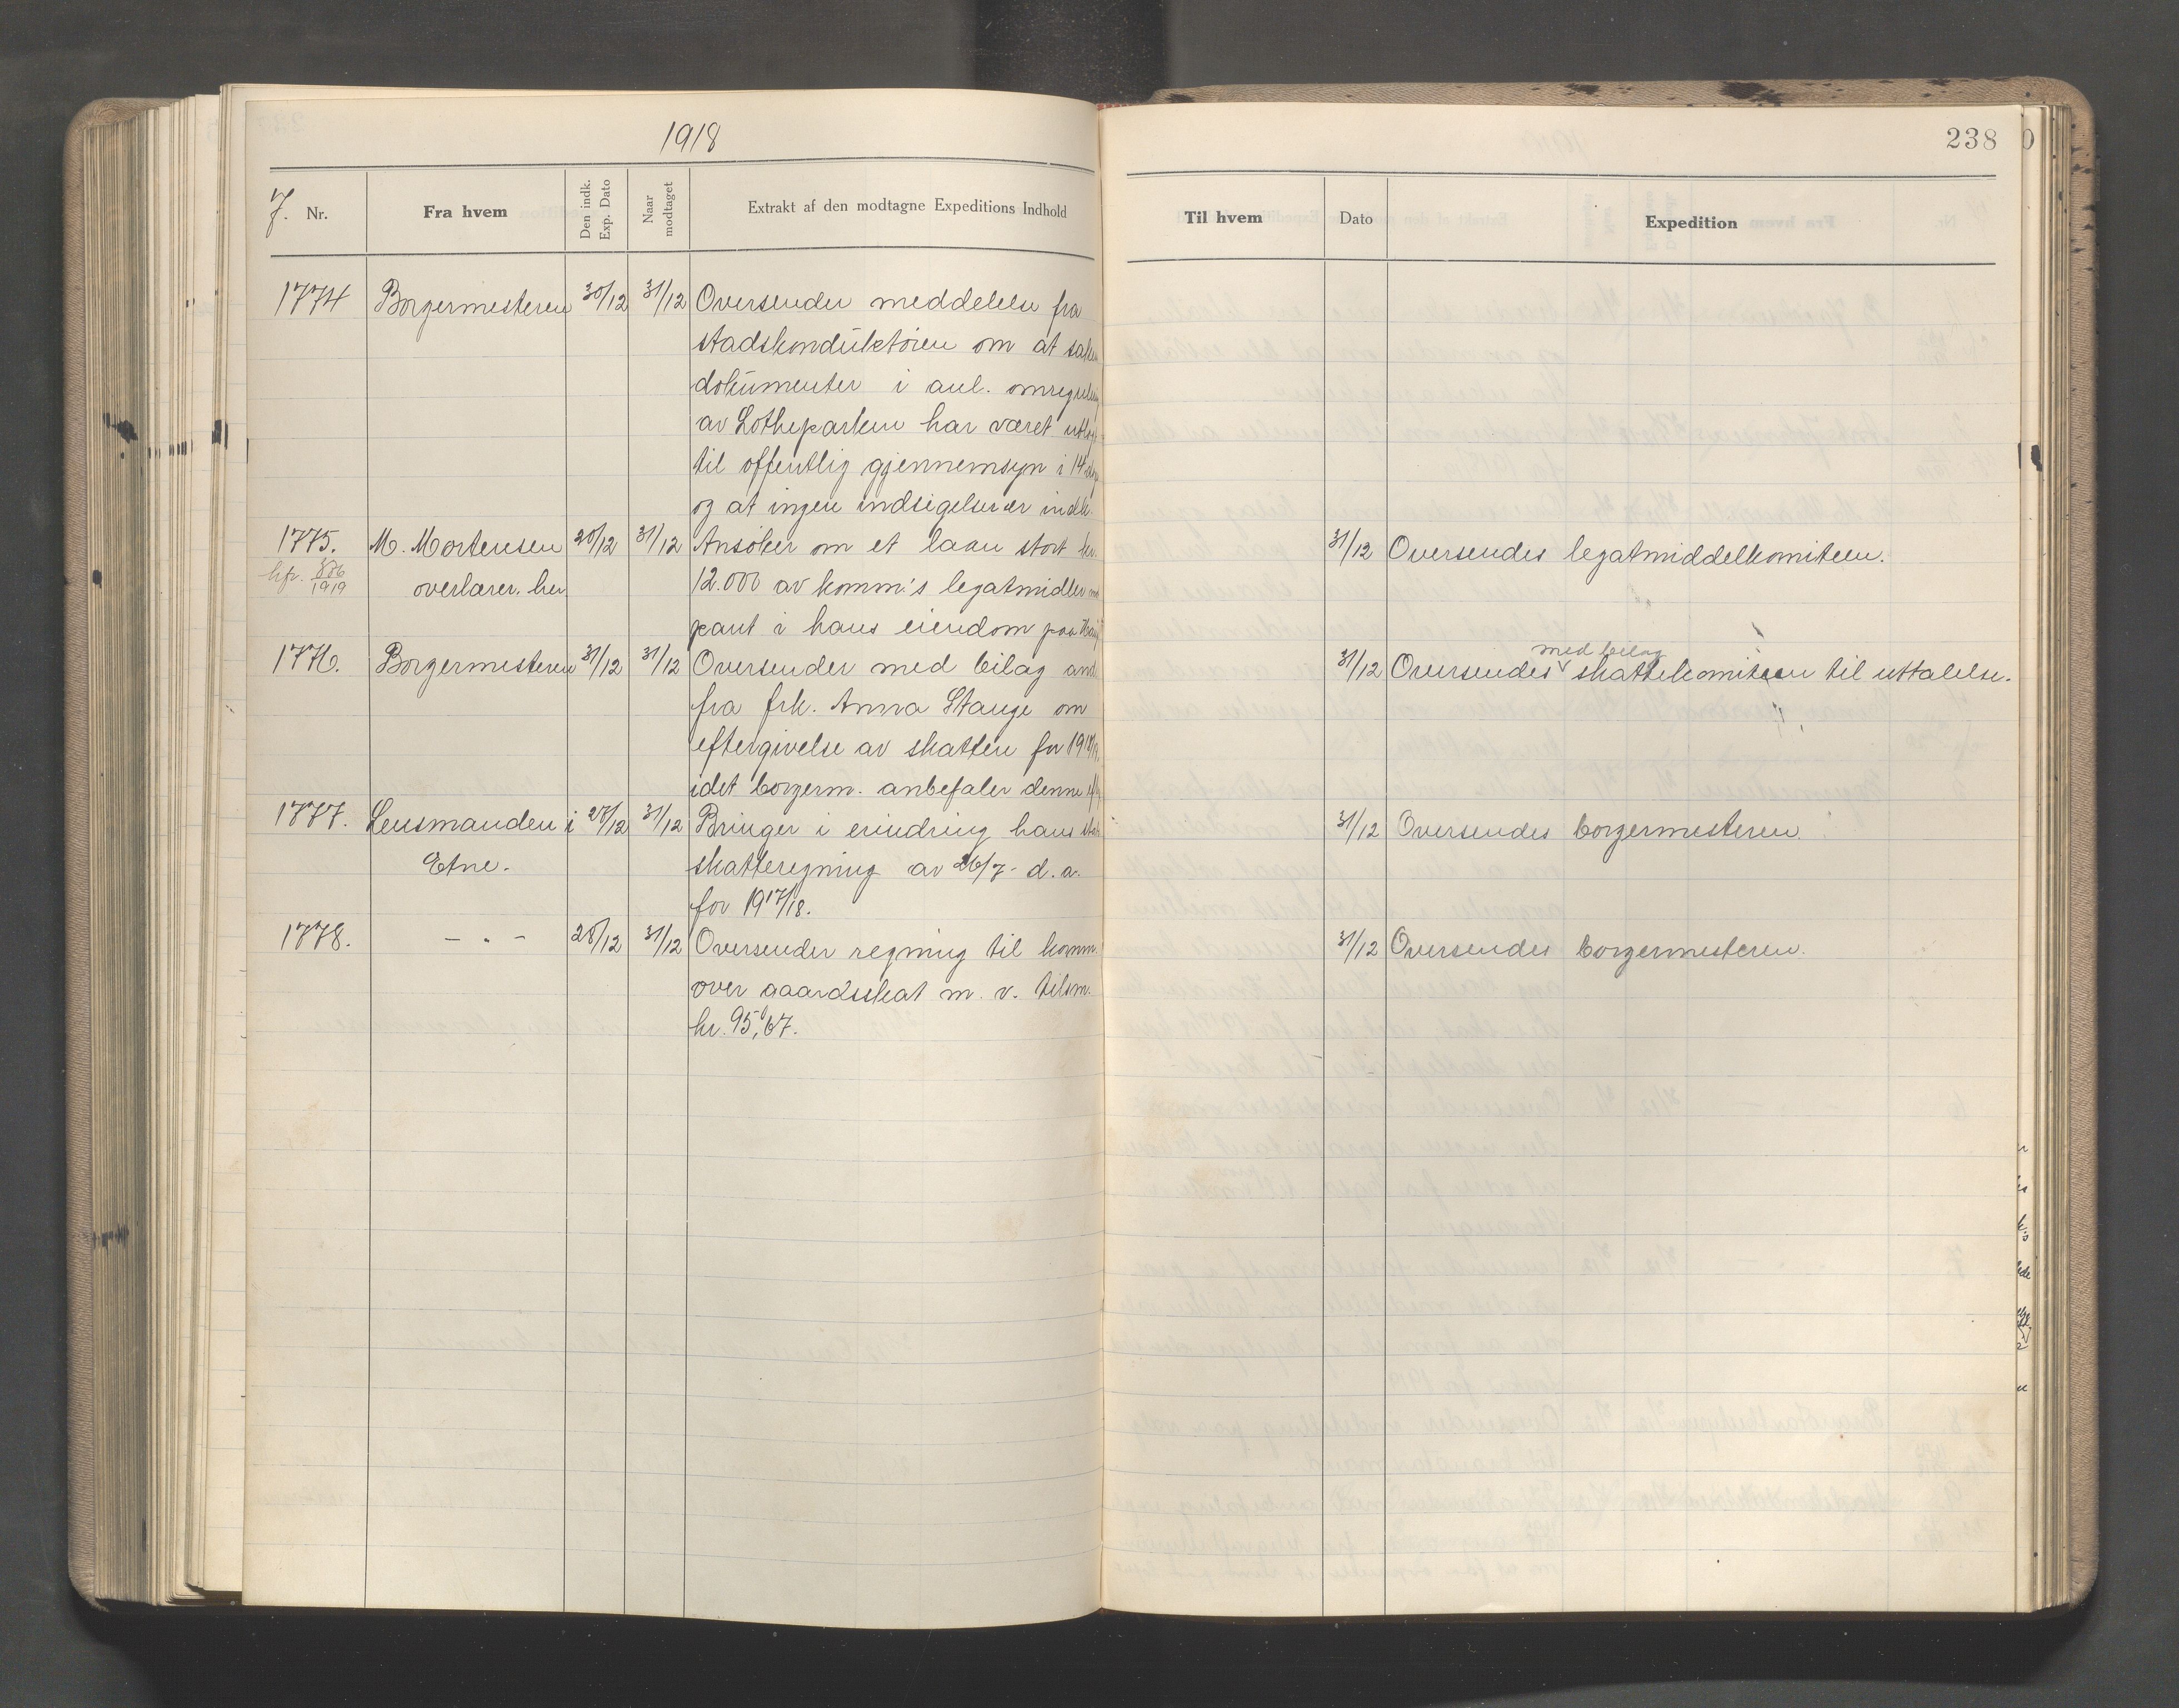 1918
238
J. Nr.
Fra hvem
Den indk. Exp. Dato
Naar modtaget
Extrakt af den modtagne Expeditions Indhold
Til hvem
Dato
Expedition
1774 Borgermesteren 30/12 31/12 Oversender meddelelse fra
stadskonduktøren om at
dokumenter i anl.
av Lotheparken har været
til offentlig gjennemsyn i 14
og at ingen indsigelser er indk.
1775. M. Mortensen 20/12 31/12 Ansøker om et laan stort kr. 31/12 Oversendes legatmiddelkomiteen.
1919 overlærer, her 12.000 av komm's legatmidler
pant i hans eiendom paa
med bilag
1776. Borgermesteren 31/12 31/12 Oversender med bilag and. 31/12 Oversendes skattekomiteen til uttalelse.
fra frk. Anna Stange om
eftergivelse av skatten for
idet borgerm. anbefaler denne
1777. Lensmanden i 28/12 31/12 Bringer i erindring hans 31/12 Oversendes borgermesteren.
Etne. skatteregning av 26/7 - d. a.
for 1917/18.
1778. - " - 28/12 31/12 Oversender regning til komm. 31/12 Oversendes borgermesteren.
over gaardsskat m. v. tilsm.
kr. 95,67.